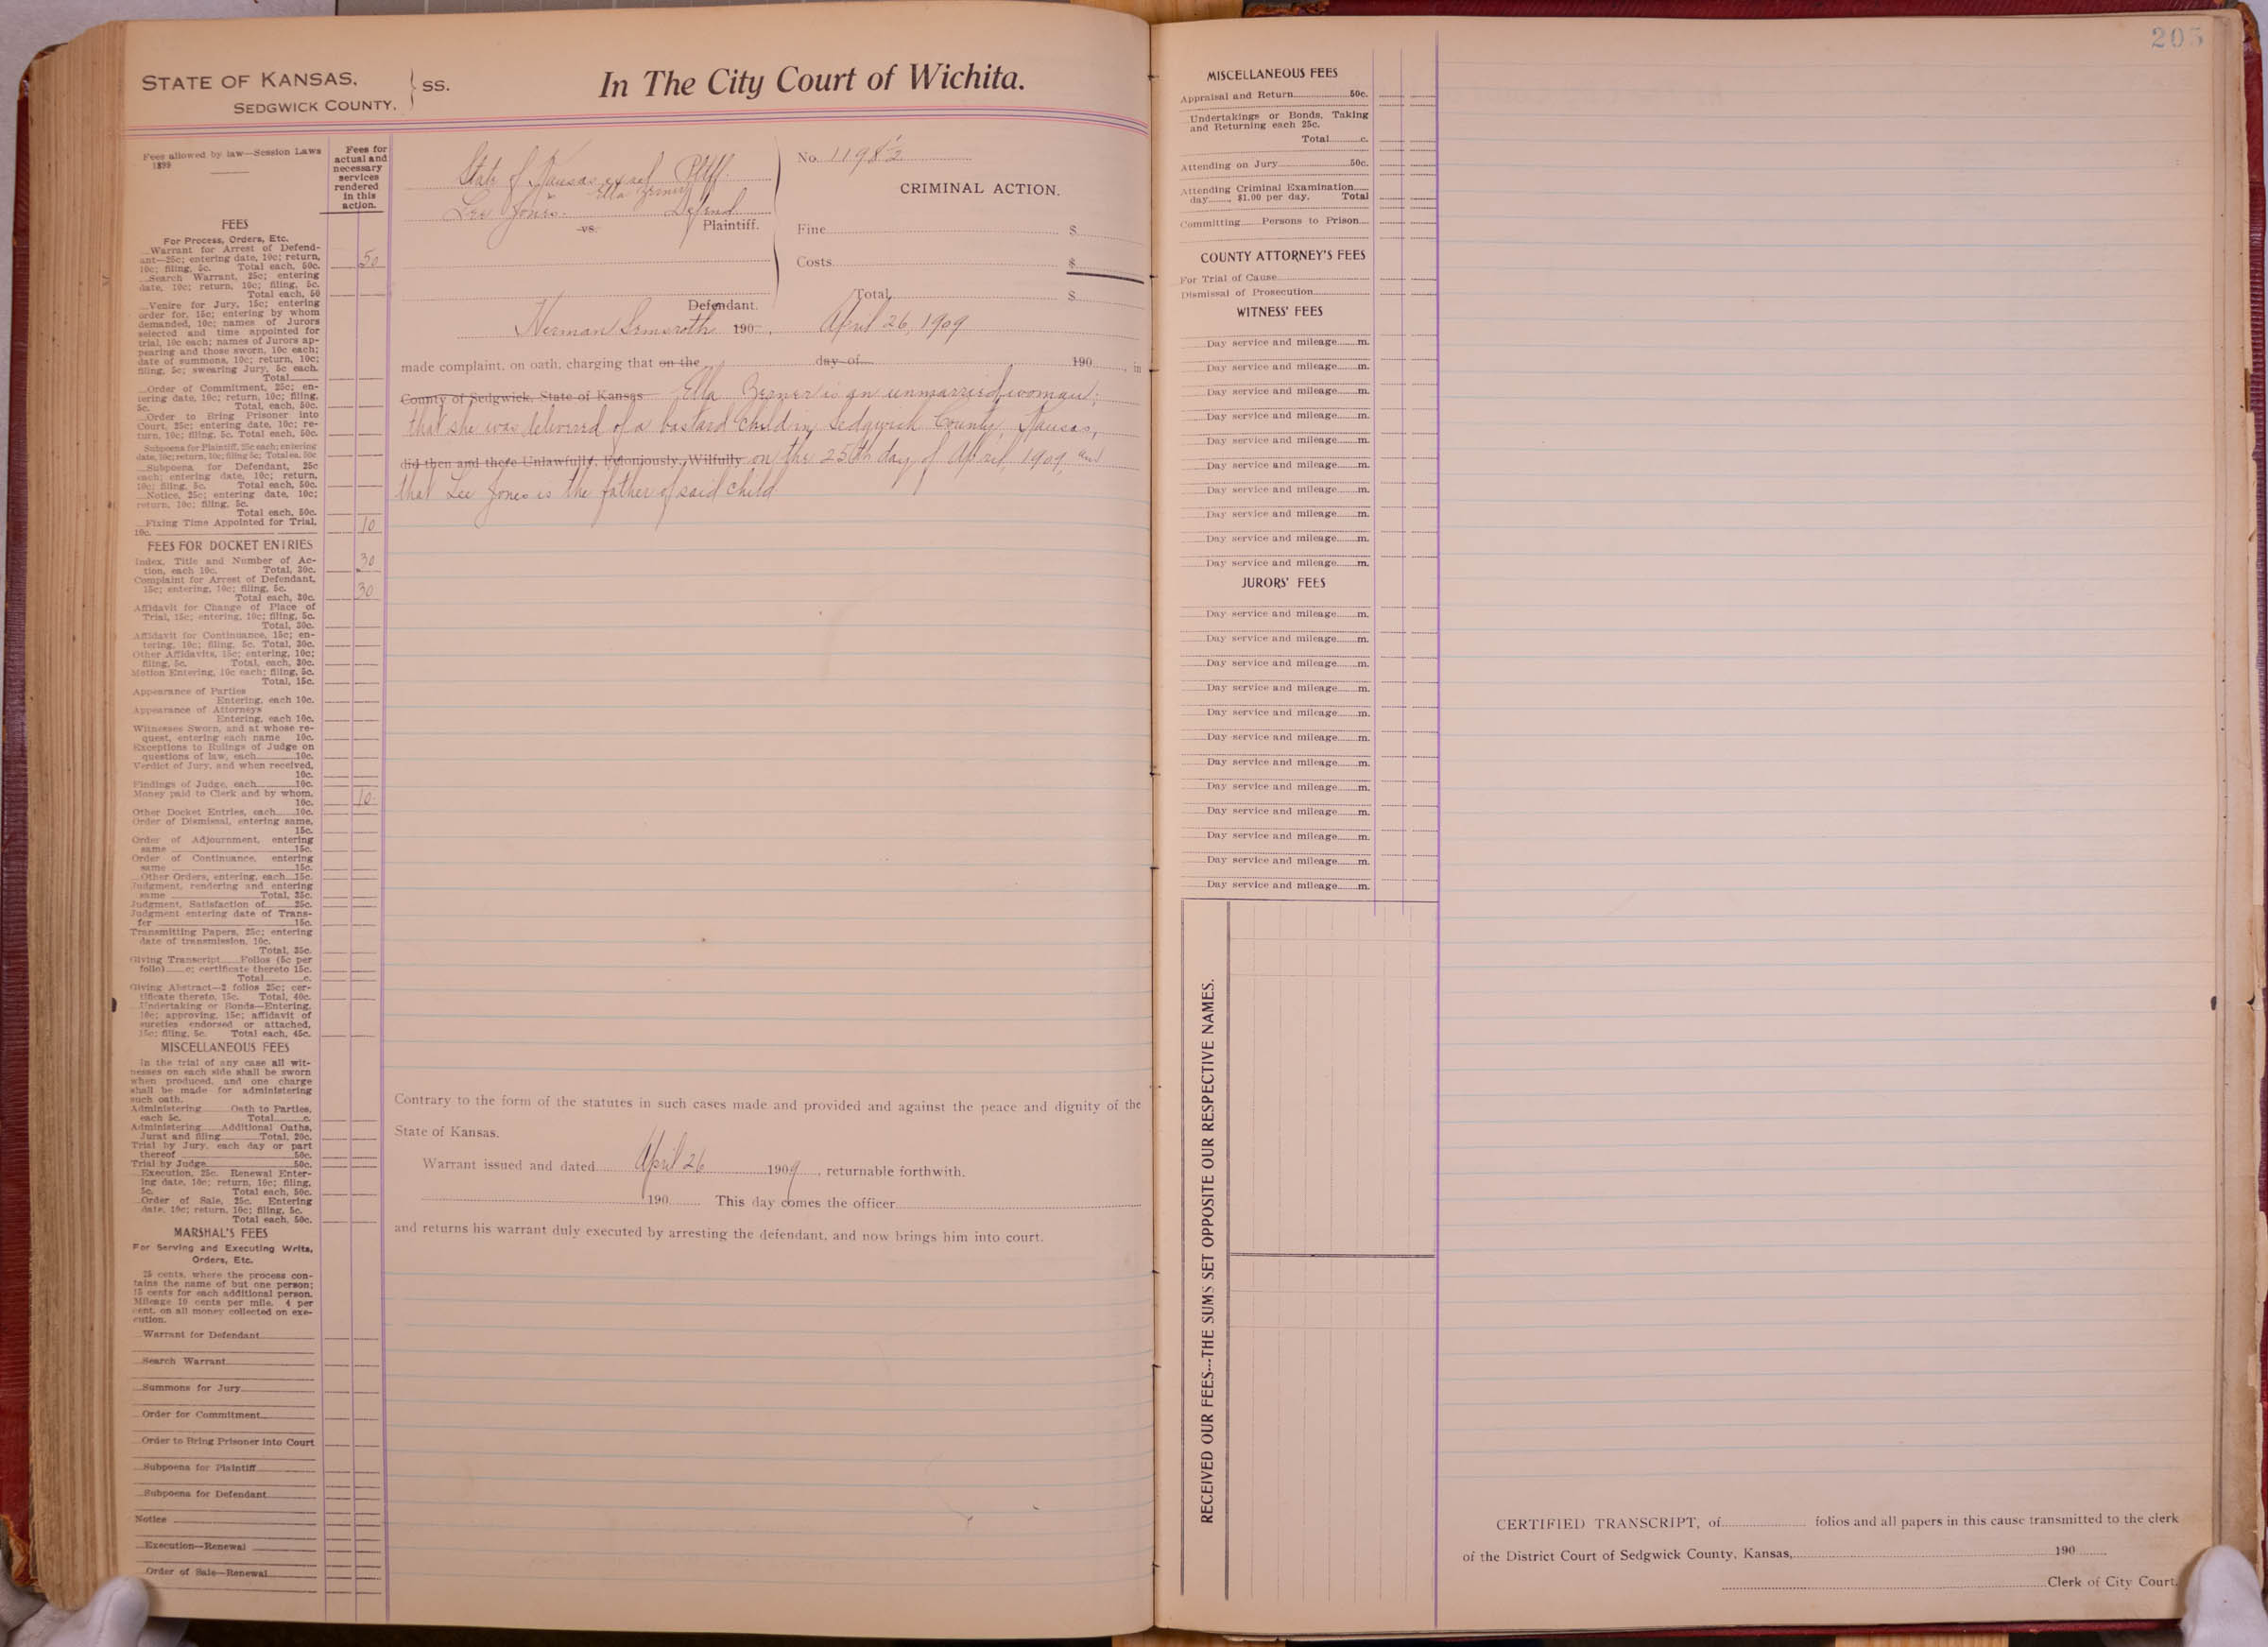 STATE OF KANSAS,
SEDGWICK COUNTY,
SS.
In The City Court of Wichita.
Fees allowed by law—Session Laws
1899
Fees for
actual and
necessary
services
rendered
in this
action.
State of Kansas ex rel Pltff.
Ella
Lee Jones. Defend
vs. Plaintiff.
Defendant.
No. 1198½
CRIMINAL ACTION.
Fine $
Costs $
Total $
Herman 190 April 26, 1909
made complaint, on oath, charging that on the day of 190 , in
County of Sedgwick, State of Kansas Ella is an unmarried woman;
that she was delivered of a bastard child in Sedgwick County, Kansas,
did then and there Unlawfully, Feloniously, Wilfully on the 25th day of April 1909, and
that Lee Jones is the father of said child
Contrary to the form of the statutes in such cases made and provided and against the peace and dignity of the
State of Kansas.
Warrant issued and dated April 26 1909, returnable forthwith.
190 This day comes the officer
and returns his warrant duly executed by arresting the defendant, and now brings him into court.
FEES
For Process, Orders, Etc.
Warrant for Arrest of Defend-
ant—25c; entering date, 10c; return,
10c; filing, 5c. Total each, 50c. 50
Search Warrant, 25c; entering
date, 10c; return, 10c; filing, 5c.
Total each, 50
Venire for Jury, 15c; entering
order for, 15c; entering by whom
demanded, 10c; names of Jurors
selected and time appointed for
trial, 10c each; names of Jurors ap-
pearing and those sworn, 10c each;
date of summons, 10c; return, 10c;
filing, 5c; swearing Jury, 5c each.
Total
Order of Commitment, 25c; en-
tering date, 10c; return, 10c; filing,
5c. Total, each, 50c.
Order to Bring Prisoner into
Court, 25c; entering date, 10c; re-
turn, 10c; filing, 5c. Total each, 50c.
Subpoena for Plaintiff, 25c each; entering
date, 10c; return, 10c; filing 5c; Total ea. 50c
Subpoena for Defendant, 25c
each; entering date, 10c; return,
10c; filing, 5c. Total each, 50c.
Notice, 25c; entering date, 10c;
return, 10c; filing, 5c.
Total each, 50c.
Fixing Time Appointed for Trial,
10c. 10
FEES FOR DOCKET ENTRIES
Index, Title and Number of Ac-
tion, each 10c. Total, 30c. 30
Complaint for Arrest of Defendant,
15c; entering, 10c; filing, 5c.
Total each, 30c. 30
Affidavit for Change of Place of
Trial, 15c; entering, 10c; filing, 5c.
Total, 30c.
Affidavit for Continuance, 15c; en-
tering, 10c; filing, 5c. Total, 30c.
Other Affidavits, 15c; entering, 10c;
filing, 5c. Total, each, 30c.
Motion Entering, 10c each; filing, 5c.
Total, 15c.
Appearance of Parties
Entering, each 10c.
Appearance of Attorneys
Entering, each 10c.
Witnesses Sworn, and at whose re-
quest, entering each name 10c.
Exceptions to Rulings of Judge on
questions of law, each 10c.
Verdict of Jury, and when received,
10c.
Findings of Judge, each 10c.
Money paid to Clerk and by whom,
10c. 10
Other Docket Entries, each 10c.
Order of Dismissal, entering same,
15c.
Order of Adjournment, entering
same 15c.
Order of Continuance, entering
same 15c.
Other Orders, entering, each 15c.
Judgment, rendering and entering
same Total, 35c.
Judgment, Satisfaction of 25c.
Judgment entering date of Trans-
fer 15c.
Transmitting Papers, 25c; entering
date of transmission, 10c.
Total, 35c.
Giving Transcript Folios (5c per
folio) c; certificate thereto 15c.
Total c.
Giving Abstract—2 folios 25c; cer-
tificate thereto, 15c. Total, 40c.
Undertaking or Bonds—Entering,
10c; approving, 15c; affidavit of
sureties endorsed or attached,
15c; filing, 5c. Total each, 45c.
MISCELLANEOUS FEES
In the trial of any case all wit-
nesses on each side shall be sworn
when produced, and one charge
shall be made for administering
such oath.
Administering Oath to Parties,
each 5c. Total c.
Administering Additional Oaths,
Jurat and filing Total, 20c.
Trial by Jury, each day or part
thereof 50c.
Trial by Judge 50c.
Execution, 25c. Renewal Enter-
ing date, 10c; return, 10c; filing,
5c. Total each, 50c.
Order of Sale, 25c. Entering
date, 10c; return, 10c; filing, 5c.
Total each, 50c.
MARSHAL'S FEES
For Serving and Executing Writs,
Orders, Etc.
25 cents, where the process con-
tains the name of but one person;
15 cents for each additional person.
Mileage 10 cents per mile. 4 per
cent. on all money collected on exe-
cution.
Warrant for Defendant
Search Warrant
Summons for Jury
Order for Commitment
Order to Bring Prisoner into Court
Subpoena for Plaintiff
Subpoena for Defendant
Notice
Execution—Renewal
Order of Sale—Renewal
205
MISCELLANEOUS FEES
Appraisal and Return 50c.
Undertakings or Bonds, Taking
and Returning each 25c.
Total c.
Attending on Jury 50c.
Attending Criminal Examination
day , $1.00 per day. Total
Committing Persons to Prison
COUNTY ATTORNEY'S FEES
For Trial of Cause
Dismissal of Prosecution
WITNESS' FEES
Day service and mileage m.
Day service and mileage m.
Day service and mileage m.
Day service and mileage m.
Day service and mileage m.
Day service and mileage m.
Day service and mileage m.
Day service and mileage m.
Day service and mileage m.
Day service and mileage m.
JURORS' FEES
Day service and mileage m.
Day service and mileage m.
Day service and mileage m.
Day service and mileage m.
Day service and mileage m.
Day service and mileage m.
Day service and mileage m.
Day service and mileage m.
Day service and mileage m.
Day service and mileage m.
Day service and mileage m.
Day service and mileage m.
RECEIVED OUR FEES---THE SUMS SET OPPOSITE OUR RESPECTIVE NAMES.
CERTIFIED TRANSCRIPT, of folios and all papers in this cause transmitted to the clerk
of the District Court of Sedgwick County, Kansas, 190
Clerk of City Court.